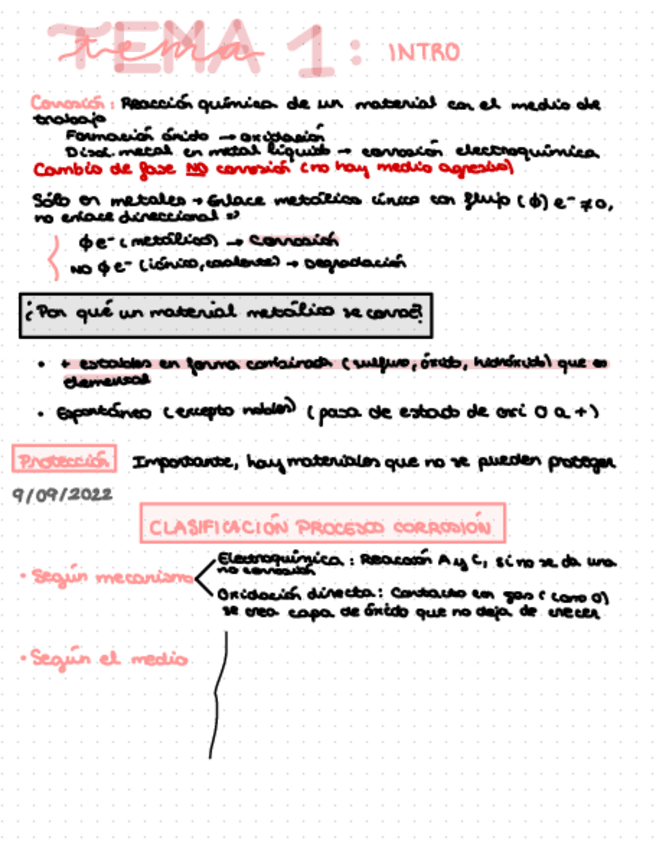 TEMA 1: INTRO
tema
Corrosión: Reacción química de un material con el medio de
trabajo
Formación óxido → oxidación
Disol. metal en metal líquido → corrosión electroquímica
Cambio de fase NO corrosión (no hay medio agresivo)
Sólo en metales → Enlace metálico único con flujo (ϕ) e⁻ ≠ 0,
no enlace direccional =>
ϕ e⁻ (metálicos) → Corrosión
NO ϕ e⁻ (iónico, covalente) → Degradación
¿Por qué un material metálico se corroe?
• + estables en forma combinada (sulfuro, óxido, hidróxido) que en
elemental
• Espontáneo (excepto nobles) (pasa de estado de oxi 0 a +)
Protección Importante, hay materiales que no se pueden proteger
9/09/2022
CLASIFICACIÓN PROCESO CORROSIÓN
• Según mecanismo
Electroquímica: Reacción A y C, si no se da una
no corrosión
Oxidación directa: Contacto con gas (como O)
se crea capa de óxido que no deja de crecer
• Según el medio